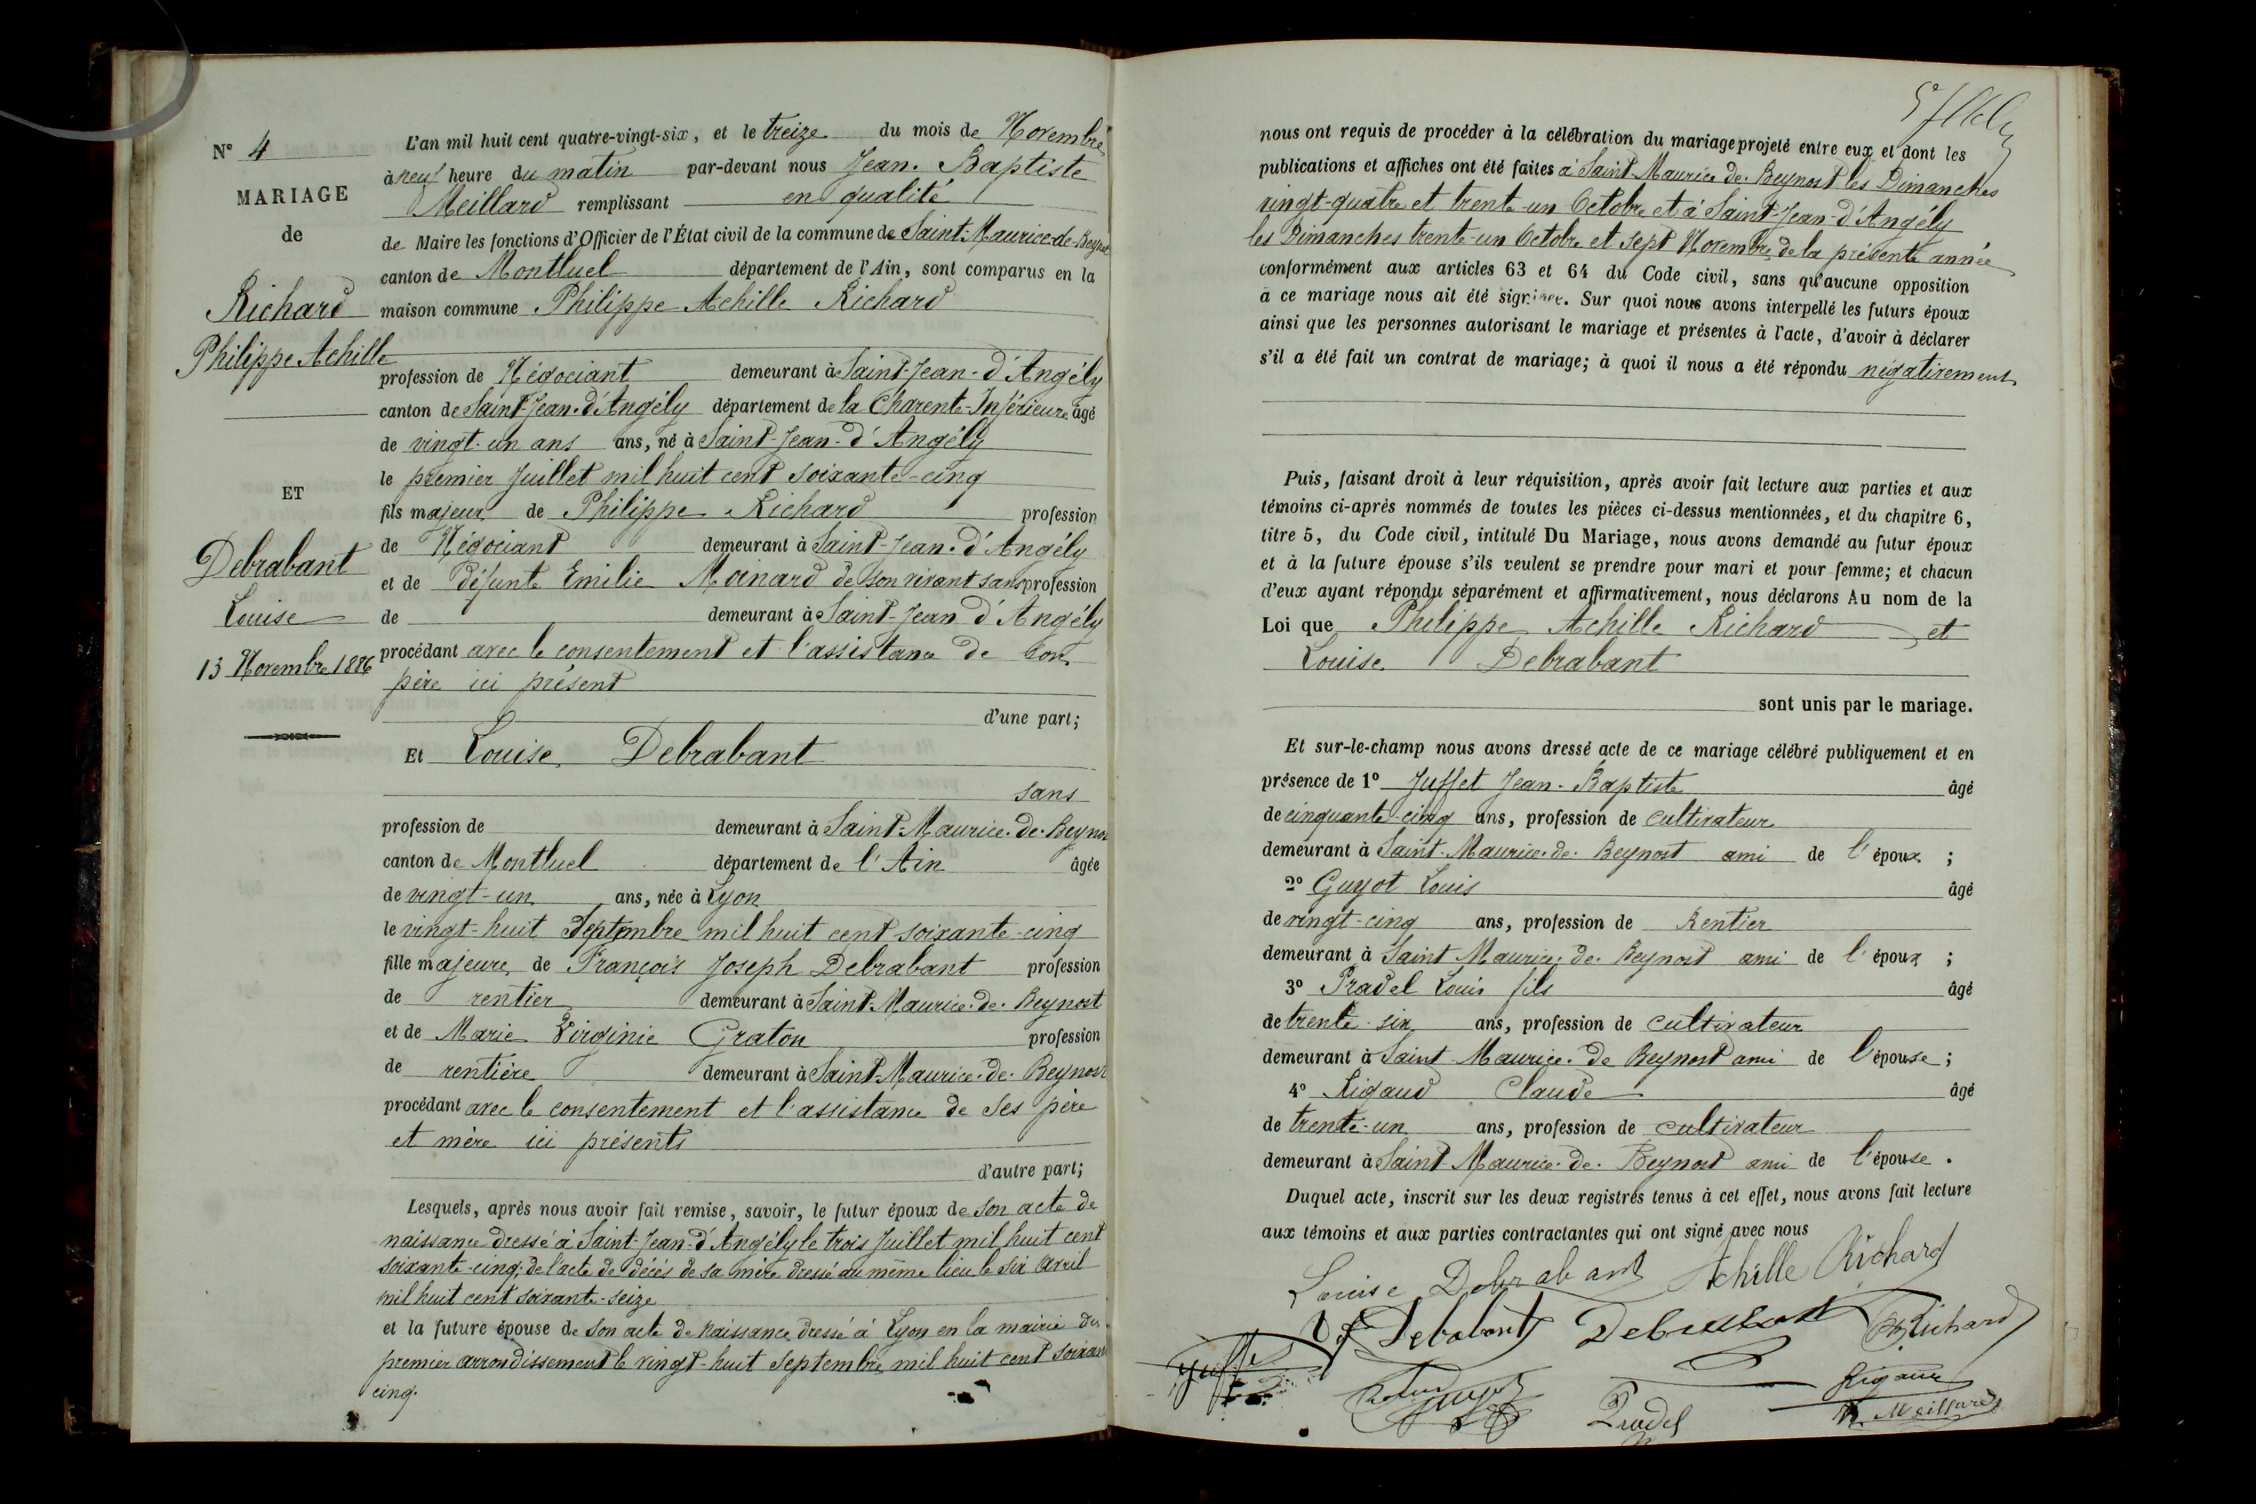 N° 4
MARIAGE
de
Richard
Philippe Achille
ET
Debrabant
Louise
13 Novembre 1886
L'an mil huit cent quatre-vingt-six, et le treize du mois de Novembre
à neuf heure du matin par-devant nous Jean-Baptiste
Meillard remplissant en qualité
de Maire les fonctions d'Officier de l'État civil de la commune de Saint-Maurice-de-Beynost
canton de Montluel département de l'Ain, sont comparus en la
maison commune Philippe Achille Richard
profession de Négociant demeurant à Saint-Jean-d'Angély
canton de Saint-Jean-d'Angély département de la Charente-Inférieure âgé
de vingt-un ans ans, né à Saint-Jean-d'Angély
le premier Juillet mil huit cent soixante-cinq
fils majeur de Philippe Richard profession
de Négociant demeurant à Saint-Jean-d'Angély
et de défunte Emilie Moinard de son vivant sans profession
de demeurant à Saint-Jean d'Angély
procédant avec le consentement et l'assistance de son
père ici présent
d'une part;
Et Louise Debrabant
sans
profession de demeurant à Saint-Maurice-de-Beynost
canton de Montluel département de l'Ain âgée
de vingt-un ans, née à Lyon
le vingt-huit Septembre mil huit cent soixante-cinq
fille majeure de François Joseph Debrabant profession
de rentier demeurant à Saint-Maurice-de-Beynost
et de Marie Virginie Graton profession
de rentière demeurant à Saint-Maurice-de-Beynost
procédant avec le consentement et l'assistance de ses père
et mère ici présents
d'autre part;
Lesquels, après nous avoir fait remise, savoir, le futur époux de son acte de
naissance dressé à Saint-Jean-d'Angély le trois Juillet mil huit cent
soixante-cinq; de l'acte de décès de sa mère dressé au même lieu le six avril
mil huit cent soixante-seize
et la future épouse de son acte de naissance dressé à Lyon en la mairie du
premier arrondissement le vingt-huit septembre mil huit cent soixante
cinq.
nous ont requis de procéder à la célébration du mariage projeté entre eux et dont les
publications et affiches ont été faites à Saint-Maurice-de-Beynost les Dimanches
vingt-quatre et trente-un Octobre et à Saint-Jean-d'Angély
les Dimanches trente-un Octobre et sept Novembre de la présente année
conformément aux articles 63 et 64 du Code civil, sans qu'aucune opposition
à ce mariage nous ait été signifiée. Sur quoi nous avons interpellé les futurs époux
ainsi que les personnes autorisant le mariage et présentes à l'acte, d'avoir à déclarer
s'il a été fait un contrat de mariage; à quoi il nous a été répondu négativement
Puis, faisant droit à leur réquisition, après avoir fait lecture aux parties et aux
témoins ci-après nommés de toutes les pièces ci-dessus mentionnées, et du chapitre 6,
titre 5, du Code civil, intitulé Du Mariage, nous avons demandé au futur époux
et à la future épouse s'ils veulent se prendre pour mari et pour femme; et chacun
d'eux ayant répondu séparément et affirmativement, nous déclarons Au nom de la
Loi que Philippe Achille Richard et
Louise Debrabant
sont unis par le mariage.
Et sur-le-champ nous avons dressé acte de ce mariage célébré publiquement et en
présence de 1° Juffet Jean-Baptiste âgé
de cinquante-cinq ans, profession de cultivateur
demeurant à Saint-Maurice-de-Beynost ami de l'époux ;
2° Guyot Louis âgé
de vingt-cinq ans, profession de Rentier
demeurant à Saint Maurice-de-Beynost ami de l'époux ;
3° Pradel Louis fils âgé
de trente-six ans, profession de cultivateur
demeurant à Saint-Maurice-de Beynost ami de l'épouse ;
4° Rigaud Claude âgé
de trente-un ans, profession de cultivateur
demeurant à Saint-Maurice-de-Beynost ami de l'épouse .
Duquel acte, inscrit sur les deux registres tenus à cet effet, nous avons fait lecture
aux témoins et aux parties contractantes qui ont signé avec nous
Louise Debrabant Achille Richard
Debrabant Debrabant Richard
Juffet Guyot Pradel Rigaud
Meillard